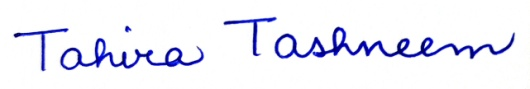 Tahira Tashneem